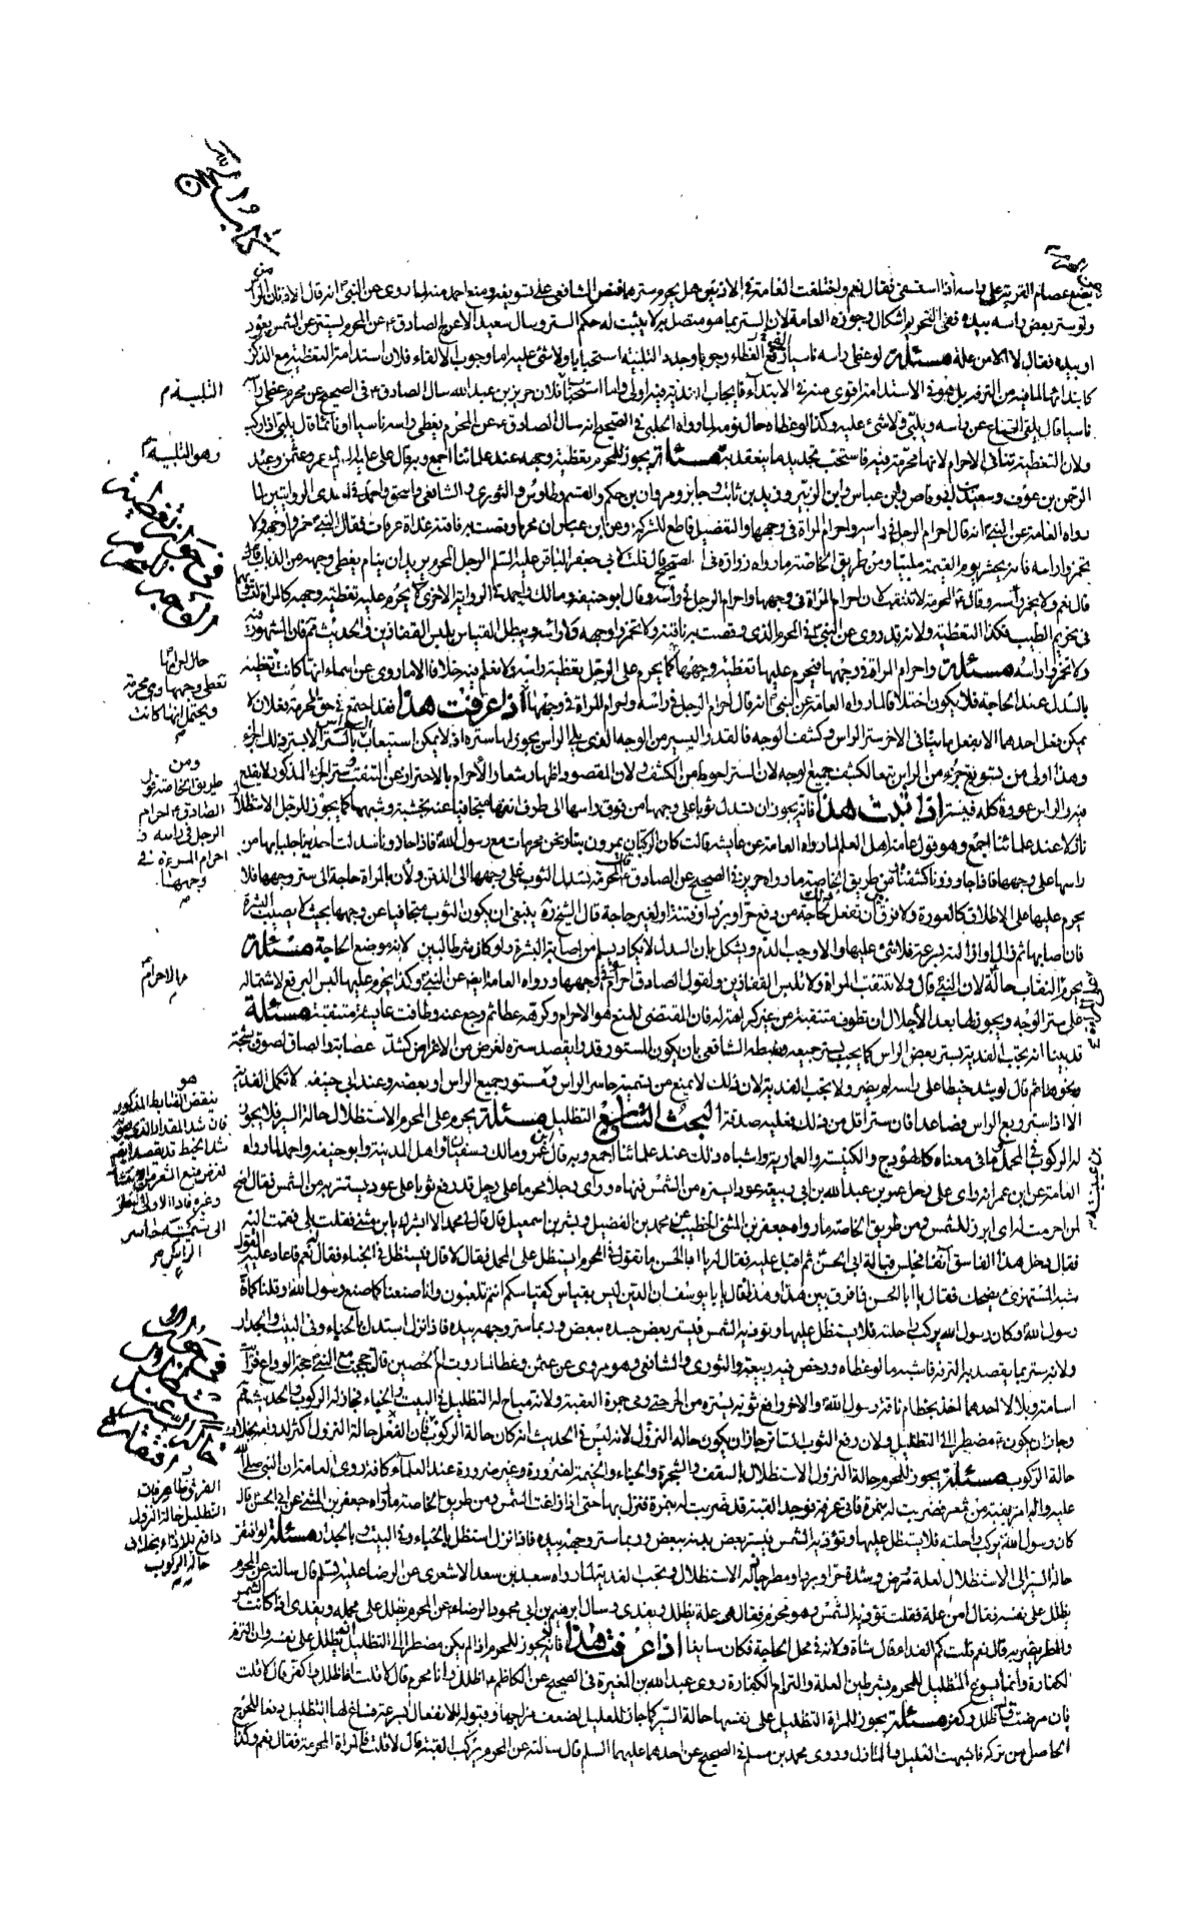 كتاب الحج
يضع عصام القربة على راسه اذا استسقى فقال نعم واختلفت العامة في الاذنين هل يحرم سترهما فعن الشافعي على تسويغه ومنع احمد منه لما روى عن النبي انه قال الاذنان من الراس
ولو ستر بعض راسه بيده ففي التحريم اشكال وجوزه العامة لان الستر بما هو متصل به لا يثبت له حكم الستر وسال سعيد الاعرج الصادق ع عن المحرم يستتر عن الشمس بعود
او بيده فقال لا الا من علة مسئلة لو غطى راسه ناسيا رفع الغطاء وجوبا وجدد التلبية استحبابا ولا شئ عليه اما وجوب الالقاء فلان استدامة التغطية مع الذكر
كابتدائها لما فيه من الترفه بل هو في الاستدامة اقوى منه في الابتداء فايجاب الفدية فيه اولى واما استحباب التلبية فلان حريز بن عبد الله سال الصادق ع في الصحيح عن محرم غطى راسه
ناسيا قال يلقى القناع عن راسه ويلبى ولا شئ عليه وكذا لو غطاه حال نومه لما رواه الحلبي في الصحيح انه سال الصادق ع عن المحرم يغطى راسه ناسيا او نائما قال يلبى اذا ذكر
ولان التغطية تنافي الاحرام لانها محرمة فيه فاستحب تجديد ما ينعقد به مسئلة يجوز للمحرم تغطية وجهه عند علمائنا اجمع وبه قال على ع وعمر وعثمن وعبد
الرحمن بن عوف وسعد بن ابي وقاص وابن عباس وابن الزبير وزيد بن ثابت وجابر ومروان بن حكم والقسم وطاوس والثوري والشافعي واسحق واحمد في احدى الروايتين لما
رواه العامة عن النبي ص انه قال احرام الرجل في راسه واحرام المراة في وجهها والتفصيل قاطع للشركة وعن ابن عباس ان محرما وقصت به ناقته غداة عرفات فقال النبي ص خمروا وجهه ولا
تخمروا راسه فانه يحشر يوم القيمة ملبيا ومن طريق الخاصة ما رواه زرارة في الصحيح قال قلت لابي جعفر الباقر عليه السلم الرجل المحرم يريد ان ينام يغطى وجهه من الذباب
قال نعم ولا يخمر راسه وقال ع المحرمة لا تتنقب لان احرام المراة في وجهها واحرام الرجل في راسه وقال ابو حنيفة ومالك واحمد في الرواية الاخرى يحرم عليه تغطية وجهه كالمراة
في تحريم الطيب فكذا التغطية ولانه قد روى عن النبي ص في المحرم الذي وقصت به ناقته ولا تخمروا وجهه ولا راسه ويبطل القياس بلبس القفازين
ولا تخمروا راسه مسئلة واحرام المراة في وجهها فيحرم عليها تغطية وجهها كما يحرم على الرجل تغطية راسه ولا نعلم فيه خلافا الا ما روى عن اسماء انها كانت تغطيه
بالسدل عند الحاجة فلا يكون اختلافا لما رواه العامة عن النبي ص انه قال احرام الرجل في راسه واحرام المراة في وجهها اذا عرفت هذا فقد اجتمع في حق المحرمة فعلان لا
يمكن فعل احدهما الا بفعل ما ينافي الاخر ستر الراس وكشف الوجه فالقدر اليسير من الوجه الذي يلى الراس يجوز لها ستره اذ لا يمكن استيعاب الراس بالستر الا بستر ذلك الجزء
وهذا اولى من تسويغ جزء من الراس تبعا لكشف جميع الوجه لان الستر احوط من الكشف ولان المقصود اظهار شعار الاحرام بالاحتراز عن التنقب وستر الجزء المذكور لا يقدح
فيه والراس عورة كله فيستر اذا ثبت هذا فانه يجوز ان تسدل ثوبا على وجهها من فوق راسها الى طرف انفها متجافيا عنه بخشبة وشبهها كما يجوز للرجل الاستظلال
نازلا عند علمائنا اجمع وهو قول عامة اهل العلم لما رواه العامة عن عايشة قالت كان الركبان يمرون بنا ونحن محرمات مع رسول الله فاذا حاذونا سدلت احدينا جلبابها من
راسها على وجهها فاذا جاوزونا كشفناه ومن طريق الخاصة ما رواه حريز في الصحيح عن الصادق ع المحرمة تسدل الثوب على وجهها الى الذقن ولان بالمراة حاجة الى ستر وجهها فلا
يحرم عليها على الاطلاق كالعورة ولا فرق ان تفعل ذلك لحاجة من دفع حر او برد او فتنة او لغير حاجة قال الشيخ ره ينبغي ان يكون الثوب متجافيا عن وجهها بحيث لا يصيب البشرة
فان اصابها ثم زال او ازالته بسرعة فلا شئ عليها والا وجب الدم ويشكل بان السدل لا يكاد يسلم من اصابة البشرة ولو كان شرطا لبين لانه موضع الحاجة مسئلة
يحرم النقاب حالة لان النبي ص قال ولا تتنقب المراة ولا تلبس القفازين ولقول الصادق ع احرام المراة في وجهها ورواه العامة ايضا عن النبي ص وكذا يحرم عليها لبس البرقع لاشتماله
على ستر الوجه ويجوز لها بعد الاحلال ان تطوف متنقبة من غير كراهة له فان المقتضى للمنع هو الاحرام وكرهه عطا ثم رجع عنه وطافت عايشة متنقبة مسئلة
قد بينا انه يجب الفدية بستر بعض الراس كما يجب بستر جميعه وضبطه الشافعي بان يكون المستور قدرا يقصد ستره لغرض من الاغراض كشد عصابة والصاق لصوق لشجة
ونحوها ثم قال لو شد خيطا على راسه لم يضر ولا يجب الفدية لان ذلك لا يمنع من تسميته حاسر الراس مستور جميع الراس او بعضه وعند ابي حنيفة لا تكمل الفدية
الا اذا ستر ربع الراس فصاعدا فان ستر اقل من ذلك فعليه صدقة البحث السابع التظليل مسئلة يحرم على المحرم الاستظلال حالة السير فلا يجوز
له الركوب في المحمل وما في معناه كالهودج والكنيسة والعمارية واشباه ذلك عند علمائنا اجمع وبه قال ابن عمر ومالك وسفيان واهل المدينة وابو حنيفة واحمد لما رواه
العامة عن ابن عمر انه راى على رحل عمر بن عبد الله بن ابي ربيعة عودا يستره من الشمس فنهاه وراى رجلا محرما على رحل قد رفع ثوبا على عود يستتر به من الشمس فقال اضح
لمن احرمت له اى ابرز للشمس ومن طريق الخاصة ما رواه جعفر بن المثنى الخطيب عن محمد بن الفضيل وبشر بن اسمعيل قال قال لي محمد الا ابشرك يا بن مثنى فقلت بلى فقمت اليه
فقال دخل هذا الفاسق آنفا فجلس قبالة ابي الحسن ثم اقبل عليه فقال له يا ابا الحسن ما تقول في المحرم ايستظل على المحمل فقال لا قال فيستظل في الخباء فقال نعم فاعاد عليه القول
شبه المستهزئ يضحك فقال يا ابا الحسن فما فرق بين هذا وهذا فقال يا با يوسف ان الدين ليس بقياس كقياسكم انتم تلعبون وانا صنعنا كما صنع رسول الله وقلنا كما قال
رسول الله وكان رسول الله يركب راحلته فلا يستظل عليها وتوذيه الشمس فيستر بعض جسده ببعض وربما ستر وجهه بيده فاذا نزل استظل بالخباء وفي البيت والجدار
ولانه ستر بما يقصد به الترفه فاشبه ما لو غطاه ورخص فيه ربيعة والثوري والشافعي وهو مروى عن عثمن وعطا لما روت ام الحصين قالت حججت مع النبي ص حجة الوداع فرايت
اسامة وبلالا احدهما اخذ بخطام ناقة رسول الله والاخر رافع ثوبه يستره من الحر حتى رمى جمرة العقبة ولانه مباح له التظليل في البيت والخباء فجاز له الركوب
وجاز ان يكون ص مضطرا الى التظليل ولان رفع الثوب الساتر جاز ان يكون حالة النزول لانه ليس في الحديث انه كان حالة الركوب
حالة الركوب مسئلة يجوز للمحرم حالة النزول الاستظلال بالسقف والشجرة والخباء والخيمة لضرورة وغير ضرورة عند العلماء كافة روى العامة ان النبي صلى الله
عليه واله امر بقبة من شعر فضربت له بنمرة فاتى عرفة فوجد القبة قد ضربت له بنمرة فنزل بها حتى اذا زاغت الشمس ومن طريق الخاصة ما رواه جعفر بن المثنى عن ابي الحسن قال
كان رسول الله يركب راحلته فلا يستظل عليها وتؤذيه الشمس فيستر بعض بدنه ببعض وربما ستر وجهه بيده فاذا نزل استظل بالخباء وفي البيت وبالجدار مسئلة لو افتقر
حالة السير الى الاستظلال لعلة لمرض وشدة حر او برد او مطر جاز له الاستظلال ويجب الفدية لما رواه سعد بن سعد الاشعري عن الرضا عليه السلم قال سالته عن المحرم
يظلل على نفسه فقال امن علة فقلت تؤذيه الشمس وهو محرم فقال هي علة يظلل ويفدى وسال ابرهيم بن ابي محمود الرضا ع عن المحرم يظلل على محمله ويفدى اذا كانت الشمس
والمطر يضر به قال نعم قلت كم الفداء قال شاة ولانه في محل الحاجة فكان سايغا اذا عرفت هذا فانه لا يجوز للمحرم اذا لم يكن مضطرا الى التظليل ان يظلل على نفسه وان التزم
الكفارة وانما يسوغ التظليل للمحرم بشرطين العلة والتزام الكفارة روى عبد الله بن المغيرة في الصحيح عن الكاظم ع اظلل وانا محرم قال لا قلت افاظلل واكفر قال لا قلت
فان مرضت قال ظلل وكفر مسئلة يجوز للمراة التظليل على نفسها حالة السير كما جاز للعليل لضعف مزاجها وقبوله للانفعال بسرعة فساغ لها التظليل دفعا للحرج
الحاصل من تركه فاشبهت العليل والنازل وروى محمد بن مسلم في الصحيح عن احدهما عليهما السلم قال سالته عن المحرم يركب القبة قال لا قلت فالمراة المحرمة فقال نعم وكذا
التلبية م
وهو التلبية
في جواز تغطية
الرجل المحرم
حال احرامها
تغطى وجهها وهي محرمة
ويحتمل انها كانت
ومن
طريق الخاصة قول
الصادق ع احرام
الرجل في راسه و
احرام المرءة في
وجهها
هو
ينقض الضابط المذكور
الفرق ظاهر فان
التظليل حالة النزول
دافع للاذاء بخلاف
حالة الركوب